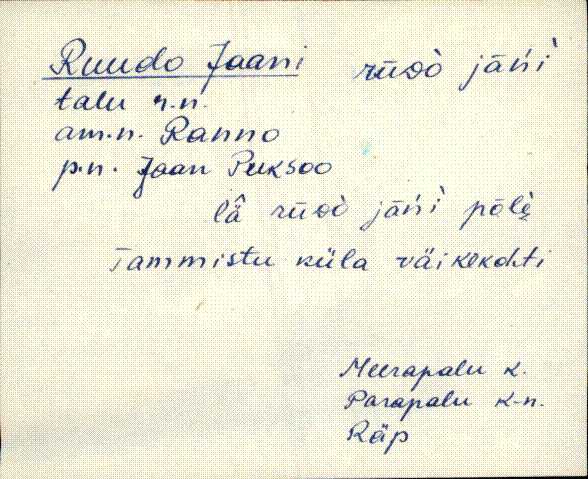 Ruudo Jaani rūᴅò jāńì
talu r.n.
am.n. Ranno
p.n. Jaan Puksoo
lǟ rūᴅò jāńì pōlè̬
Tammistu küla väikekohti
Meerapalu k.
Parapalu k-n.
Räp